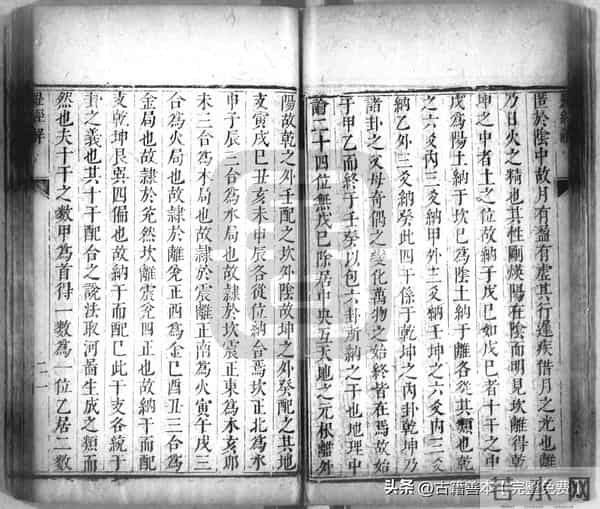 匿於陰中故月有盈有虛其行遲疾借月之光也離
乃日火之精也其性剛燥陽在陰而明見坎離得乾
坤之中者土之位故納于戊巳如戊巳者十干之中
戊為陽土納于坎巳為陰土納于離各從其類也乾
之六爻內三爻納甲外三爻納壬坤之六爻內三爻
納乙外三爻納癸此四干係于乾坤之內卦乾坤乃
諸卦之父母奇偶之變化萬物之始終皆在焉故始
于甲乙而終于壬癸以包六卦所納之干也地理中
論二十四位無戊巳除居中央五天地之元根離外
陽故乾之外壬配之坎外陰故坤之外癸配之其地
支寅戌巳丑亥未申辰各從位納合焉坎正北為水
申子辰三合為水局也故隸於坎震正東為木亥耶
未三合為木局也故隸於震離正南為火寅午戌三
合為火局也故隸於離兌正西為金巳酉丑三合為
金局也故隸於兌然坎離震兌四正也故納干而配
支乾坤艮巽四偏也故納干而配巳此干支各統于
卦之義也其十干配合之說法取河啚生成之類而
然也夫十干之數甲為首得一數為一位乙居二數
二一
头条 @古籍善本十完整免费